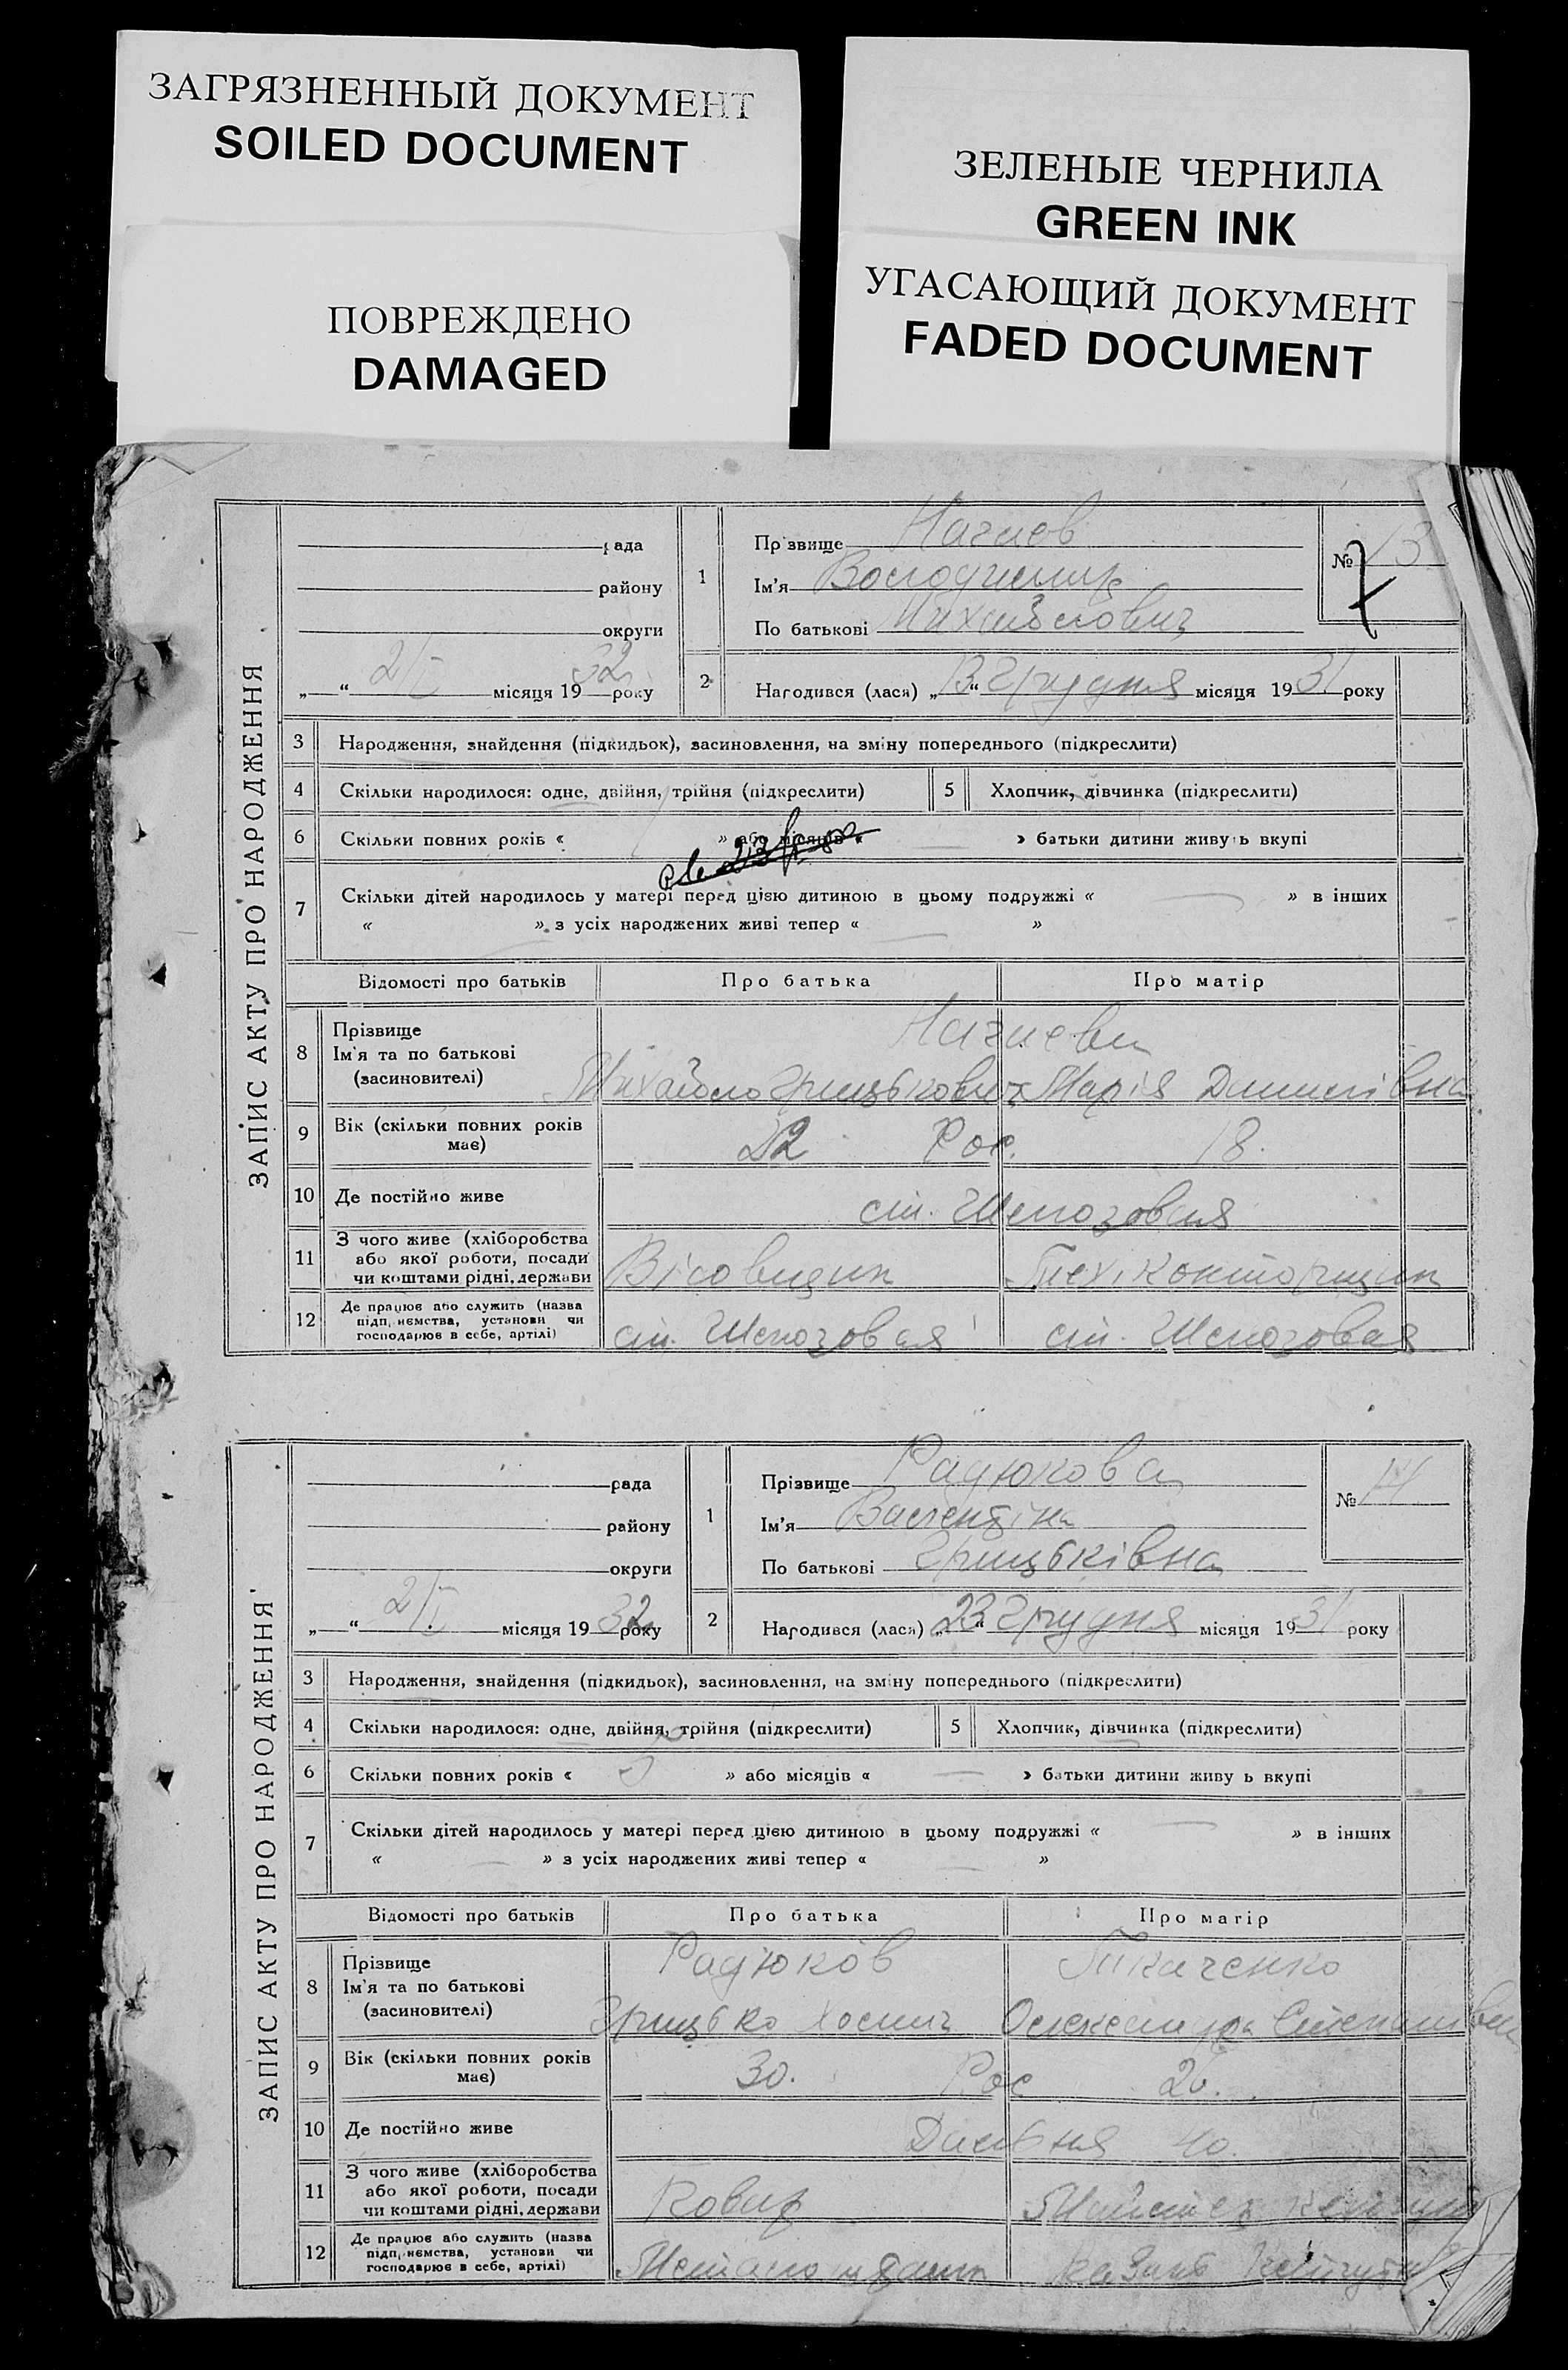 ЗАГРЯЗНЕННЫЙ ДОКУМЕНТ
SOILED DOCUMENT
ПОВРЕЖДЕНО
DAMAGED
ЗЕЛЕНЫЕ ЧЕРНИЛА
GREEN INK
УГАСАЮЩИЙ ДОКУМЕНТ
FADED DOCUMENT
ЗАПИС АКТУ ПРО НАРОДЖЕННЯ
рада
району
округи
„ “ 2/I місяця 1932 року
1
Прізвище Нагиев
Ім'я Володимир
По батькові Михайлович
№ 13
2
Народився (лася) „13“ Грудня місяця 1931 року
3 Народження, знайдення (підкидьок), засиновлення, на зміну попереднього (підкреслити)
4 Скільки народилося: одне, двійня, трійня (підкреслити)
5 Хлопчик, дівчинка (підкреслити)
6 Скільки повних років « 1 » або місяців « — » батьки дитини живуть вкупі
7 Скільки дітей народилось у матері перед цією дитиною в цьому подружжі « — » в інших
« — » з усіх народжених живі тепер « — »
Відомості про батьків Про батька Про матір
8 Прізвище Нагиеви
Ім'я та по батькові
(засиновителі) Михайло Грицькович Марія Данилівна
9 Вік (скільки повних років має) 22 Рос. 18.
10 Де постійно живе ст.
11 З чого живе (хліборобства
або якої роботи, посади
чи коштами рідні, держави Вісовщик Тех. конторщик
12 Де працює або служить (назва
підприємства, установи чи
господарює в себе, артілі) ст. ст.
ЗАПИС АКТУ ПРО НАРОДЖЕННЯ
рада
району
округи
„ “ 2/I місяця 1932 року
1
Прізвище Радюкова
Ім'я Валентіна
По батькові Грицьківна
№ 14
2
Народився (лася) „23“ Грудня місяця 1931 року
3 Народження, знайдення (підкидьок), засиновлення, на зміну попереднього (підкреслити)
4 Скільки народилося: одне, двійня, трійня (підкреслити)
5 Хлопчик, дівчинка (підкреслити)
6 Скільки повних років « » або місяців « — » батьки дитини живуть вкупі
7 Скільки дітей народилось у матері перед цією дитиною в цьому подружжі « — » в інших
« — » з усіх народжених живі тепер « — »
Відомості про батьків Про батька Про матір
8 Прізвище Радюков Ткаченко
Ім'я та по батькові
(засиновителі) Грицько Олександра Степанівна
9 Вік (скільки повних років має) 30. Рос 26.
10 Де постійно живе Дальня 40.
11 З чого живе (хліборобства
або якої роботи, посади
чи коштами рідні, держави Коваль
12 Де працює або служить (назва
підприємства, установи чи
господарює в себе, артілі)